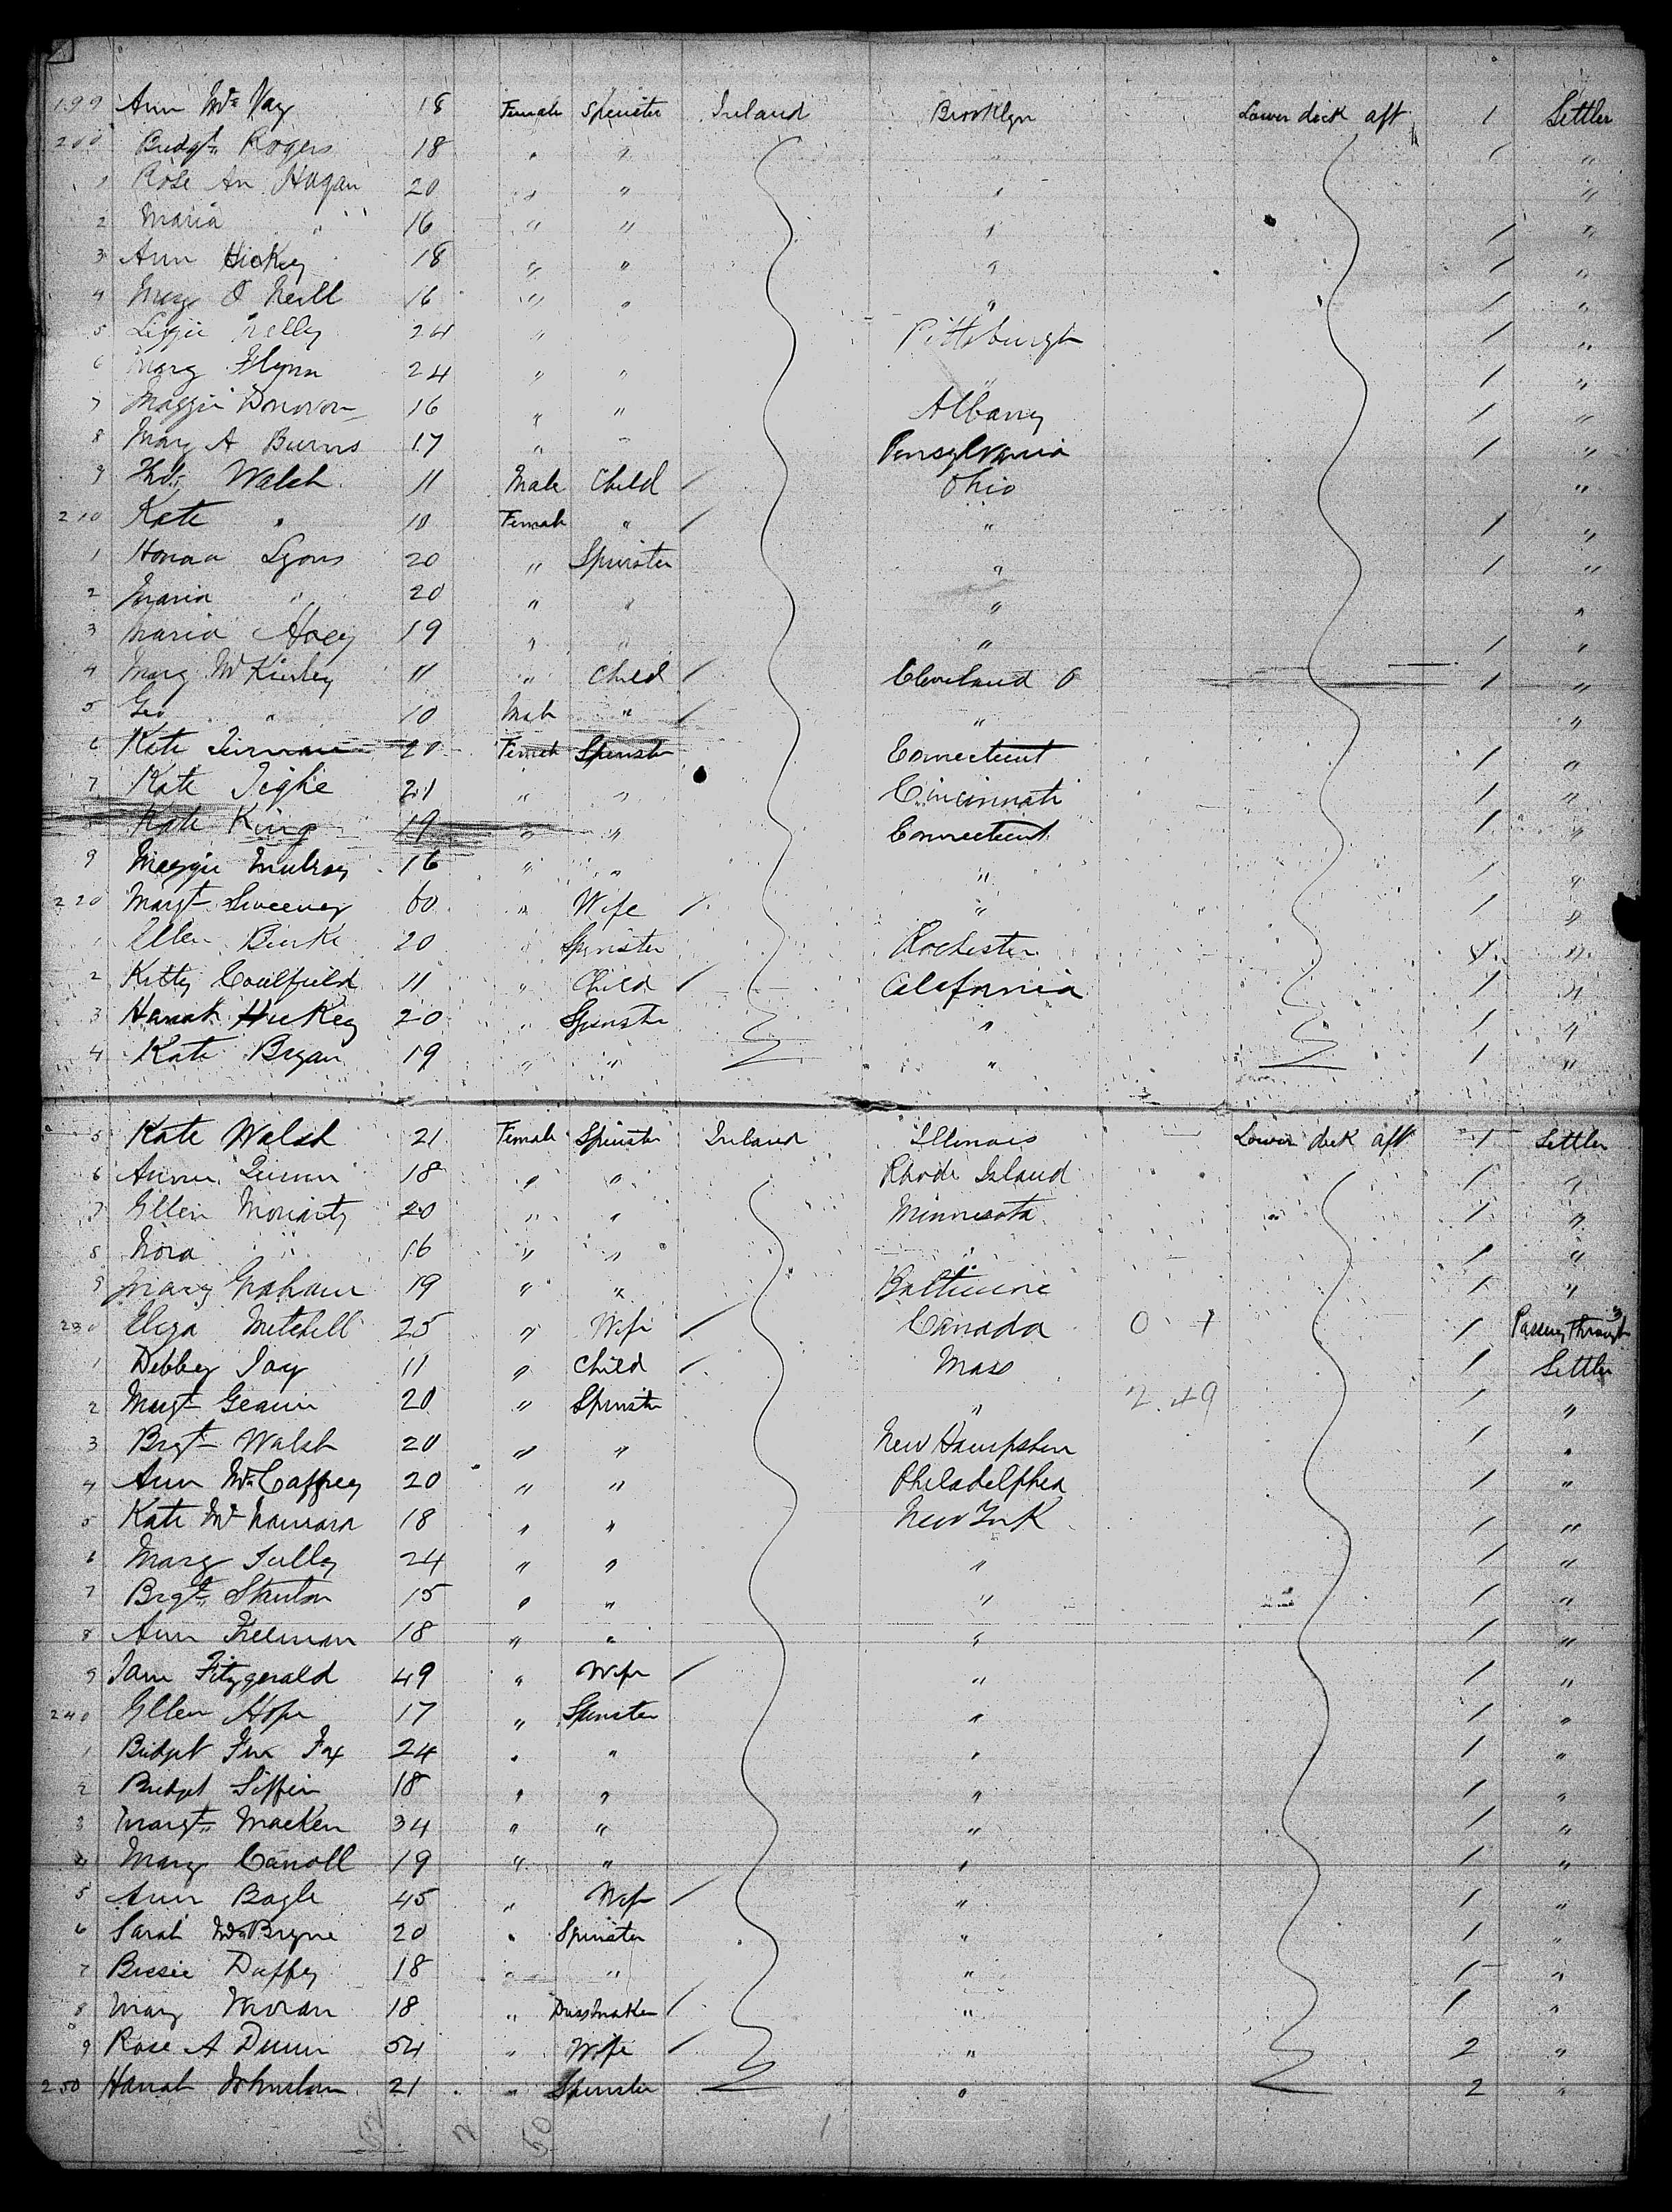 199 Ann Mc Vay 18 Female Spinster Ireland Brooklyn Lower deck aft 1 Settler
200 Bridgt. Rogers 18 " " " 1 "
1 Rose An Hagan 20 " " " "
2 Maria " 16 " " " 1 "
3 Ann Hickey 18 " " " 1 "
4 Mary O Neill 16 " " " 1 "
5 Lizzie Kelly 24 " Pittsburgh 1 "
6 Mary Flynn 24 " " " 1 "
7 Maggie Donovon 16 " " Albany 1 "
8 Mary A Burns 17 " " Pensylvania 1 "
9 Thos. Walsh 11 Male Child / Ohio "
210 Kate " 10 Female " / " 1 "
1 Honaa Lyons 20 " Spinster " 1 "
2 Maria " 20 " " " "
3 Maria Hoey 19 " " " 1 "
4 Mary McKinley 11 " Child / Cleveland O 1 "
5 Geo " 10 Male " / " "
6 Kate 20 Female Spinster Connecticut 1 "
7 Kate Tighe 21 " " Cincinnati 1 "
8 Kate King 19 " " Connecticut 1 "
9 Maggie Mulroy 16 " " " 1 "
220 Margt Sweeney 60 " Wife / " 1 "
1 Ellen Burke 20 " Spinster Rochester 1 "
2 Kitty Caulfield 11 " Child / California 1 "
3 Hanah Hickey 20 " Spinster " 1 "
4 Kate Bryan 19 " " " 1 "
5 Kate Walsh 21 Female Spinster Ireland Illinois Lower deck aft 1 Settler
6 Annie Quinn 18 " " Rhode Island 1 "
7 Ellen Moriarty 20 " " Minnesota 1 "
8 Nora " 16 " " " 1 "
9 Mary Graham 19 " " Baltimore 1 "
230 Eliza Mitchell 25 " Wife / Canada 0 1 1 Passing through
1 Debbey Joy 11 " Child / Mass 1 Settler
2 Margt 20 " Spinster " 2 49 1 "
3 Brgt Walsh 20 " " New Hampshire 1 "
4 Ann McCaffrey 20 " " Philadelphia 1 "
5 Kate McNamara 18 " " New York 1 "
6 Mary Tully 24 " " " 1 "
7 Brgt. Stanton 15 " " " 1 "
8 Ann Freeman 18 " " " 1 "
9 Jane Fitzgerald 49 " Wife / " 1 "
240 Ellen Hope 17 " Spinster " 1 "
1 Bridget Fox 24 " " " 1 "
2 Bridget 18 " " " 1 "
3 Margt. Macken 34 " " " 1 "
4 Mary Carroll 19 " " " 1 "
5 Ann Bagle 45 " Wife / " 1 "
6 Sarah McBryne 20 " Spinster " 1 "
7 Bessie Duffy 18 " " " 1 "
8 Mary Moran 18 " Dressmaker / " 1 "
9 Rose A Dunn 54 " Wife / " 2 "
250 Hanah Johnston 21 " Spinster " 2 "